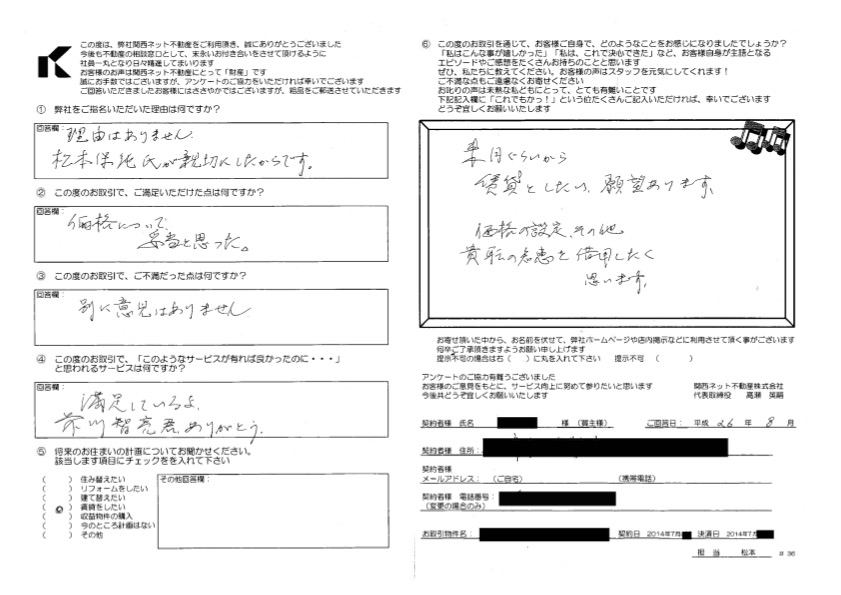 この度は、弊社関西ネット不動産をご利用頂き、誠にありがとうございました
今後も不動産の相談窓口として、末永いお付き合いをさせて頂けるように
社員一丸となり日々精進してまいります
お客様のお声は関西ネット不動産にとって「財産」です
誠にお手数ではございますが、アンケートのご協力をいただければ幸いでございます
ご回答いただきましたお客様にはささやかではございますが、粗品をご郵送させていただきます
① 弊社をご指名いただいた理由は何ですか?
回答欄:
理由はありません。
松本保純氏が親切にしたからです。
② この度のお取引で、ご満足いただけた点は何ですか?
回答欄:
価格について、
妥当と思った。
③ この度のお取引で、ご不満だった点は何ですか?
回答欄:
別に意見はありません
④ この度のお取引で、「このようなサービスが有れば良かったのに・・・」
と思われるサービスは何ですか?
回答欄:
満足しているよ、
前川智亮君、ありがとう。
⑤ 将来のお住まいの計画についてお聞かせください。
該当します項目にチェックをを入れて下さい
( ) 住み替えたい
( ) リフォームをしたい
( ) 建て替えたい
( ) 賃貸をしたい
( ) 収益物件の購入
( ) 今のところ計画はない
( ) その他
その他回答欄:
⑥ この度のお取引を通じて、お客様ご自身で、どのようなことをお感じになりましたでしょうか?
「私はこんな事が嬉しかった」「私は、これで決心できた」など、お客様自身が主語となる
エピソードやご感想をたくさんお持ちのことと思います
ぜひ、私たちに教えてください。お客様の声はスタッフを元気にしてくれます!
ご不満な点もご遠慮なくお寄せください
お叱りの声は未熟な私どもにとって、とても有難いことです
下記記入欄に「これでもかっ!」という位たくさんご記入いただければ、幸いでございます
どうぞ宜しくお願いいたします
来月ぐらいから
賃貸としたい、願望あります。
価格の設定、その他
貴転の知恵を借用したく
思います。
お寄せ頂いた中から、お名前を伏せて、弊社ホームページや店内掲示などに利用させて頂く事がございます
何卒ご了承頂きますようお願い申し上げます
提示不可の場合は右( )に丸を入れて下さい 提示不可 ( )
アンケートのご協力有難うございました
お客様のご意見をもとに、サービス向上に努めて参りたいと思います
今後共どうぞ宜しくお願いいたします
関西ネット不動産株式会社
代表取締役 高瀬 英嗣
契約者様 氏名 様 (買主様) ご回答日: 平成 26 年 8 月
契約者様 住所:
契約者様
メールアドレス: (ご自宅) (携帯電話)
契約者様 電話番号:
(変更の場合のみ)
お取引物件名: 契約日 2014年7月 決済日 2014年7
担 当 松本 # 36